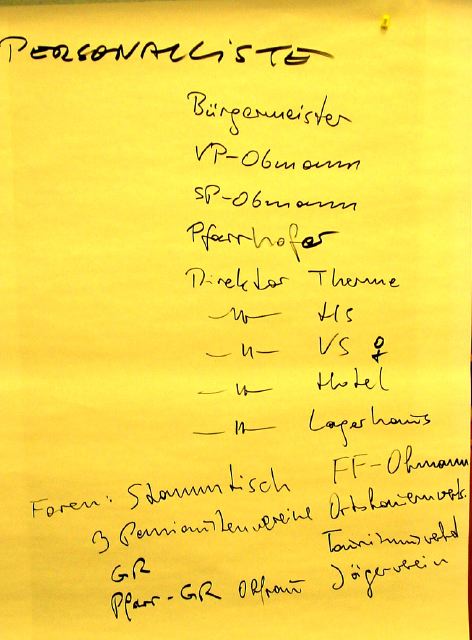 PERSONALLISTE
Bürgermeister
VP-Obmann
SP-Obmann
Pfarrhofer
Direktor Therme
— " — HS
— " — VS ♀
— " — Hotel
— " — Lagerhaus
Foren: Stammtisch FF-Obmann
3 Pensionistenvereine Ortsbauern
GR Tourismusverband
Pfarr-GR Obfrau Jägerverein